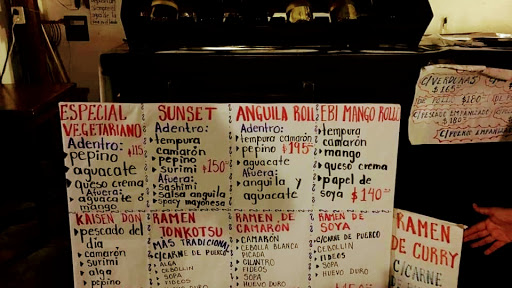 ESPECIAL
VEGETARIANO
Adentro: $115
pepino
aguacate
queso crema
Afuera:
aguacate o
mango
SUNSET
Adentro:
tempura
camarón
pepino
surimi $150
Afuera:
sashimi
salsa anguila
spacy mayonesa
ANGUILA ROLL
Adentro:
tempura camarón
pepino $195
aguacate
Afuera:
anguila y
aguacate
EBI MANGO ROLL
tempura
camarón
mango
queso crema
papel de
soya $140
C/VERDURAS
$165
$180
C/PESCADO EMPANIZADO
$180
KAISEN DON
pescado del
día
camarón
surimi
alga
pepino
RAMEN
TONKOTSU
MAS TRADICIONAL
C/CARNE DE PUERCO
ALGA
CEBOLLIN
FIDEOS
SOPA
HUEVO DURO
RAMEN DE
CAMARÓN
CAMARÓN
CEBOLLA BLANCA
PICADA
CILANTRO
FIDEOS
SOPA
HUEVO DURO
RAMEN DE
SOYA
C/CARNE DE PUERCO
CEBOLLIN
FIDEOS
SOPA
HUEVO DURO
RAMEN
DE CURRY
C/CARNE
DE